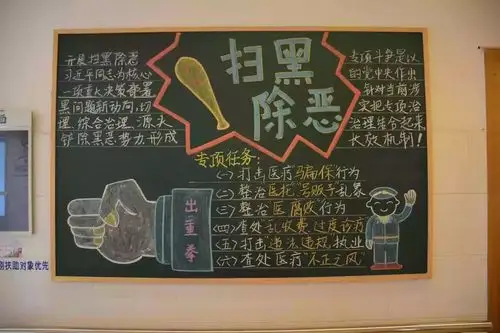 开展扫黑除恶
习近平同志为核心
一项重大决策部署
黑问题新动向,切
理、综合治理、源头
铲除黑恶势力形成
扫黑
除恶
专项斗争是以
的党中央作出
针对当前涉
实把专项治
治理结合起来
长效机制!
专项任务:
(一)打击医疗"骗保"行为
(二)整治"医托"号贩子乱象
(三)整治医腐败行为
(四)查处乱收费、过度诊疗
(五)打击违法违规执业
(六)查处医疗"不正之风"
出重拳
扶助对象优先